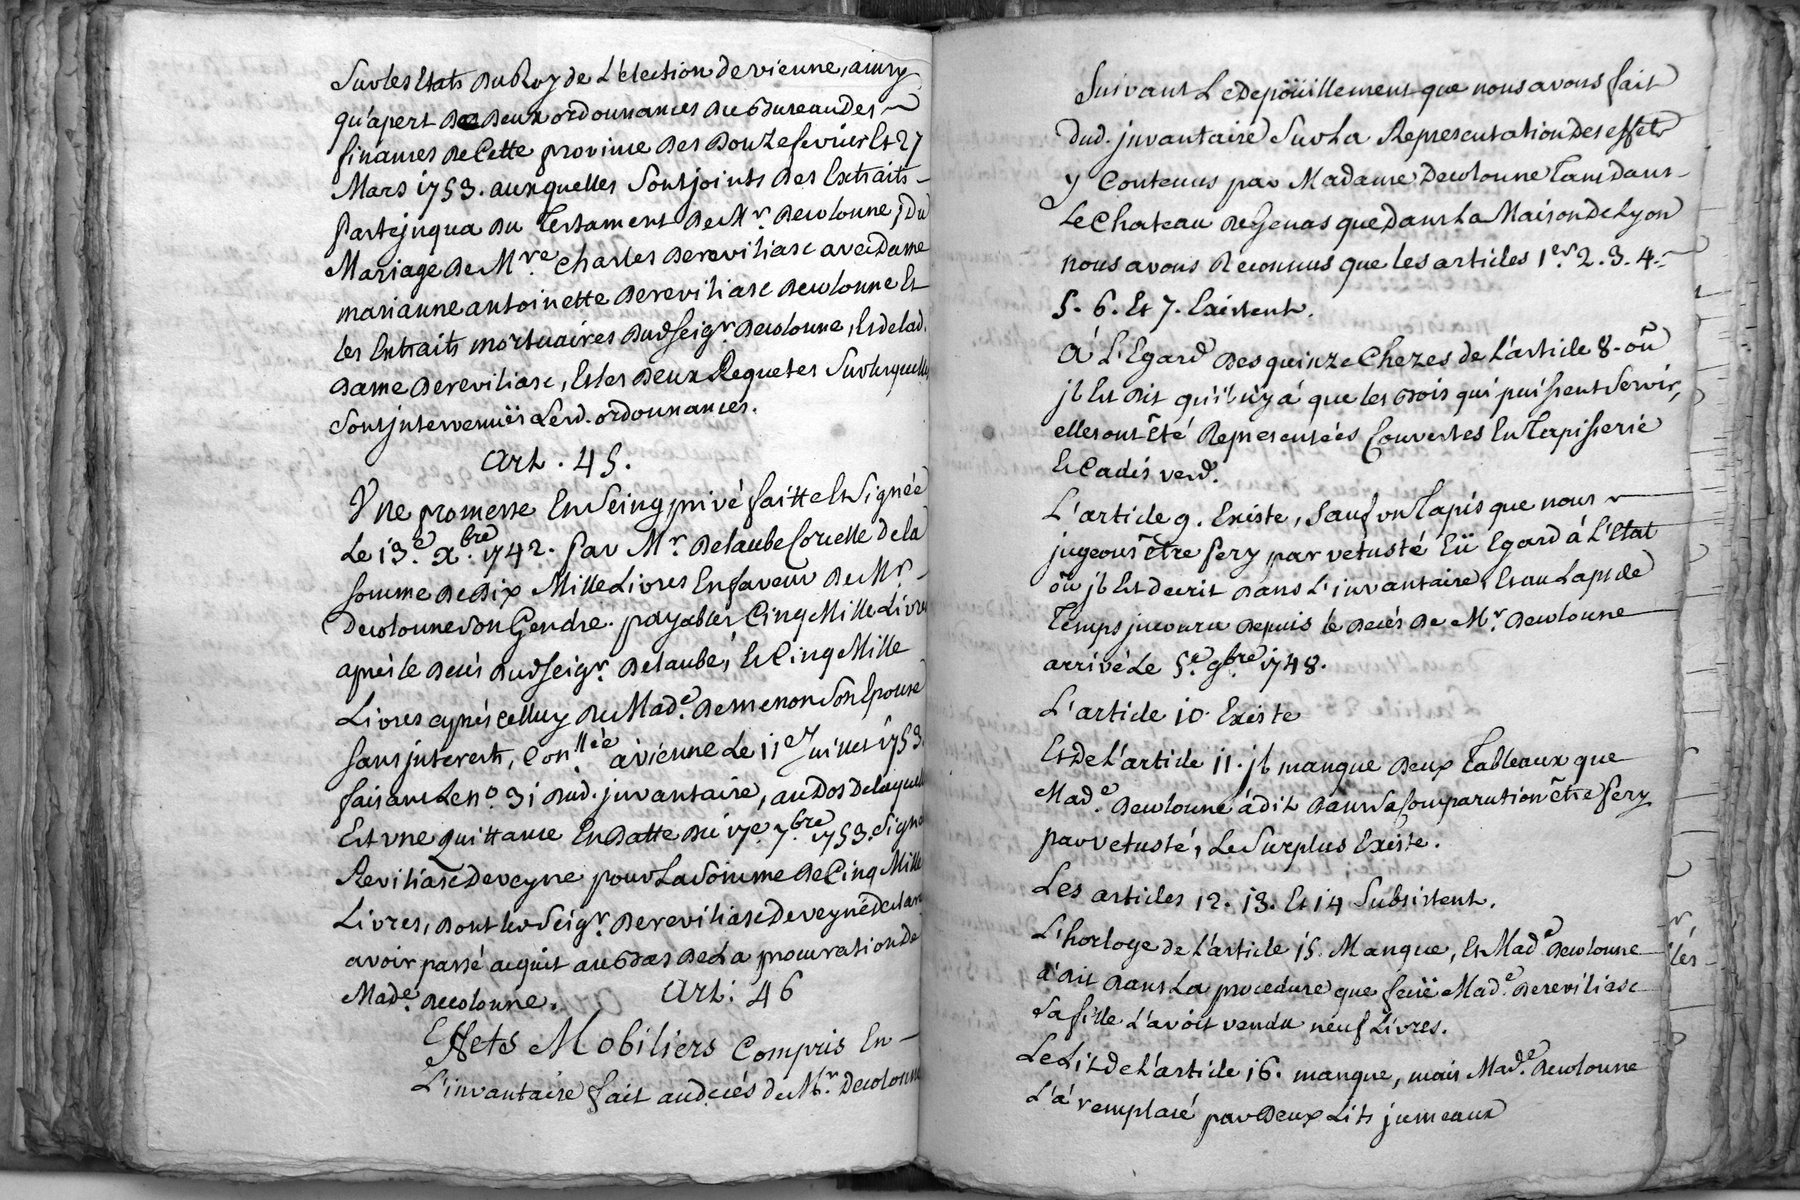 Sur les Etats du Roy de L'élection de vienne, ainsy
qu'apert des deux ordonnances du bureau des
finances de Cette province des Douze fevrier Et 27
Mars 1753. auxquelles sont joints des Extraits
parte in qua du Testament de Mr. Decolonne, du
Mariage de Mre. Charles de reviliasc avec Dame
marianne antoinette de reviliasc decolonne Et
les Extraits mortuaires dud. seigr. decolonne, Et de lad.
dame de reviliasc, Et les deux Requetes Sur lesquelles
sont intervenuës Lesd. ordonnances.
Art. 45.
Une promesse En seing privé faitte Et signée
Le 13e. xbre. 1742. par Mr. Delaube de la
somme de dix Mille Livres En faveur de Mr.
Decolonne son Gendre. payables Cinq Mille Livres
après le decés dud. seigr. Delaube, Et Cinq Mille
Livres après celluy de Made. de menon son Epouse
sans interests, Conllée à vienne Le 11e Juillet 1753.
faisant Le no. 31 dud. invantaire, au Dos de laquelle
Est une quittance En datte du 17e. 7bre. 1753. signé
Reviliasc De veyne pour La somme de Cinq Mille
Livres, dont led. seigr. de reviliasc De veyne declare
avoir passé acquit au bas de La procuration de
Made. decolonne.
Art. 46
Effets Mobiliers Compris En
L'invantaire fait au decés de Mr. Decolonne
Suivant Le Depöuillement que nous avons fait
dud. invantaire Sur La Representation Des effets
y Contenus par Madame Decolonne Tant Dans
Le Chateau de Genas que Dans La Maison de Lyon
nous avons Reconnus que les articles 1er. 2. 3. 4.
5. 6. Et 7. Existent.
A L'Egard des quinze Chezes de L'article 8. où
il Est dit qu'il n'y a que les bois qui puissent servir,
elles ont été Representées Couvertes En Tapisserie
Et Cadis verd.
L'article 9. Existe, sauf un Tapis que nous
jugeons être pery par vetusté Eü Egard à L'Etat
où il Est decrit dans L'invantaire, Et au Laps de
Temps jncouru depuis le decés de Mr. Decolonne
arrivé Le 5e. 9bre. 1748.
L'article 10. Existe
Et De L'article 11. il manque deux Tableaux que
Made. Decolonne à dit dans sa Comparution être pery
par vetusté, Le Surplus Existe.
Les articles 12. 13. Et 14 Subsistent.
L'horloge de L'article 15. Manque, Et Made. decolonne
à dit dans La procedure que feüe Made. de reviliasc
sa fille L'avoit vendu neuf Livres.
Le Lit de L'article 16. manque, mais Made. decolonne
L'à remplacé par deux Lits jumeaux